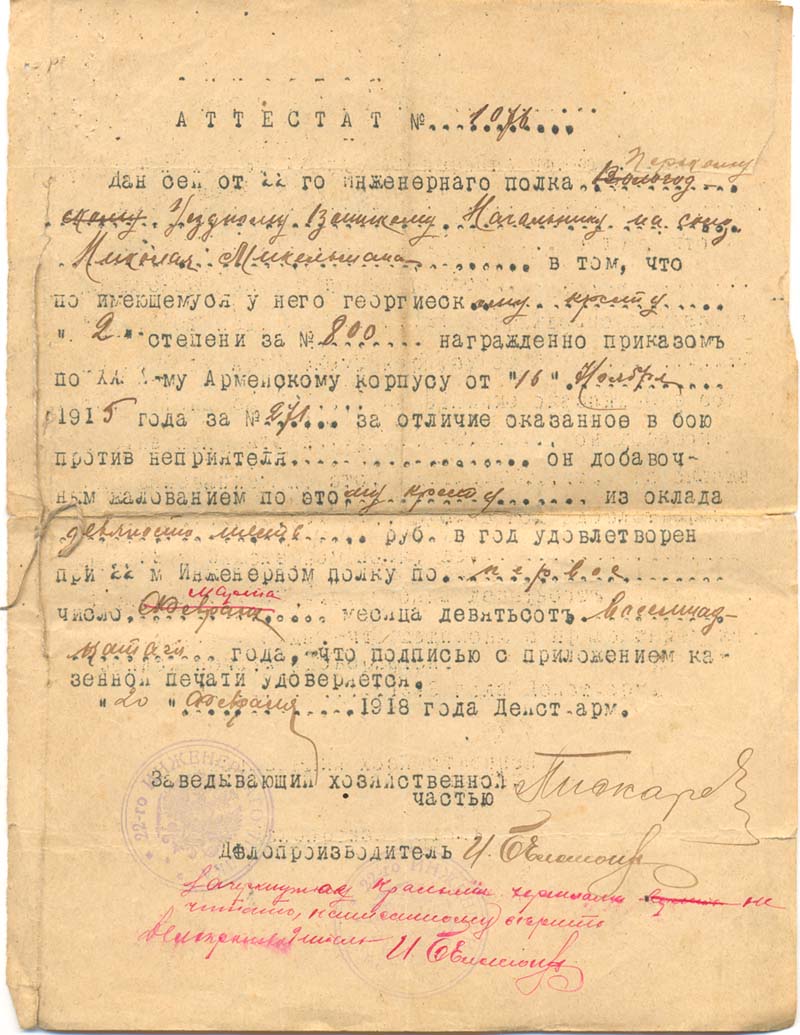 АТТЕСТАТ № 1076
Пермскому
Дан сей от 22 го инженернаго полка Вологод-
скому Уездному Воинскому Начальнику на
Николая Микельмана в том, что
по имеющемуся у него георгиескому кресту
"2" степени за № 800 награжденно приказомъ
по XX -му Армейскому корпусу от "16" Ноября
1915 года за № 271 за отличие оказанное в бою
против неприятеля он добавоч-
ным жалованием по этому кресту из оклада
девяносто шесть руб. в год удовлетворен
при 22 м Инженерном полку по первое
Марта
число, Февраля месяца девятьсотъ восемнад-
цатаго года, что подписью с приложением ка-
зенной печати удоверяется.
"20" Февраля 1918 года Дейст.арм.
Заведывающий хозяйственной
частью Пискарев
Делопроизводитель И.
Зачеркнутое красными чернилами не
читать, написанному верить
Делопроизводитель И.
22-го ИНЖЕНЕРНОГО